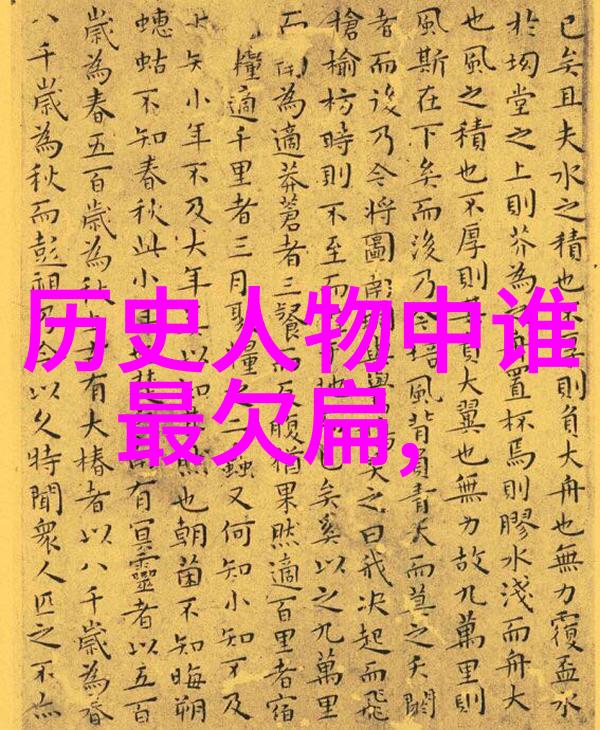 已矣且夫水之積也不則負大舟也無力覆盃水
於坳堂之上則芥為置杯焉則膠水淺而舟大
也風之積也不厚則負大翼也無力故九萬里則
風斯在下矣而後乃今培風背負青天而莫之夭閼
者而後乃今將圖南之曰我決起而飛
槍榆枋時則不至而地已矣奚以之九萬里
而為適莽蒼者三餐而反腹猶果然適百里者宿
糧適千里者三月聚糧之二蟲又何知小知不及
小年不及大年以知然也朝菌不知晦朔
蟪蛄不知春秋此小年南有冥靈者以五百
歲為春五百歲為秋有大椿者以八千歲為春
八千歲為秋而彭祖乃今以久特聞衆人匹之不亦
历史人物中谁
最欠扁,